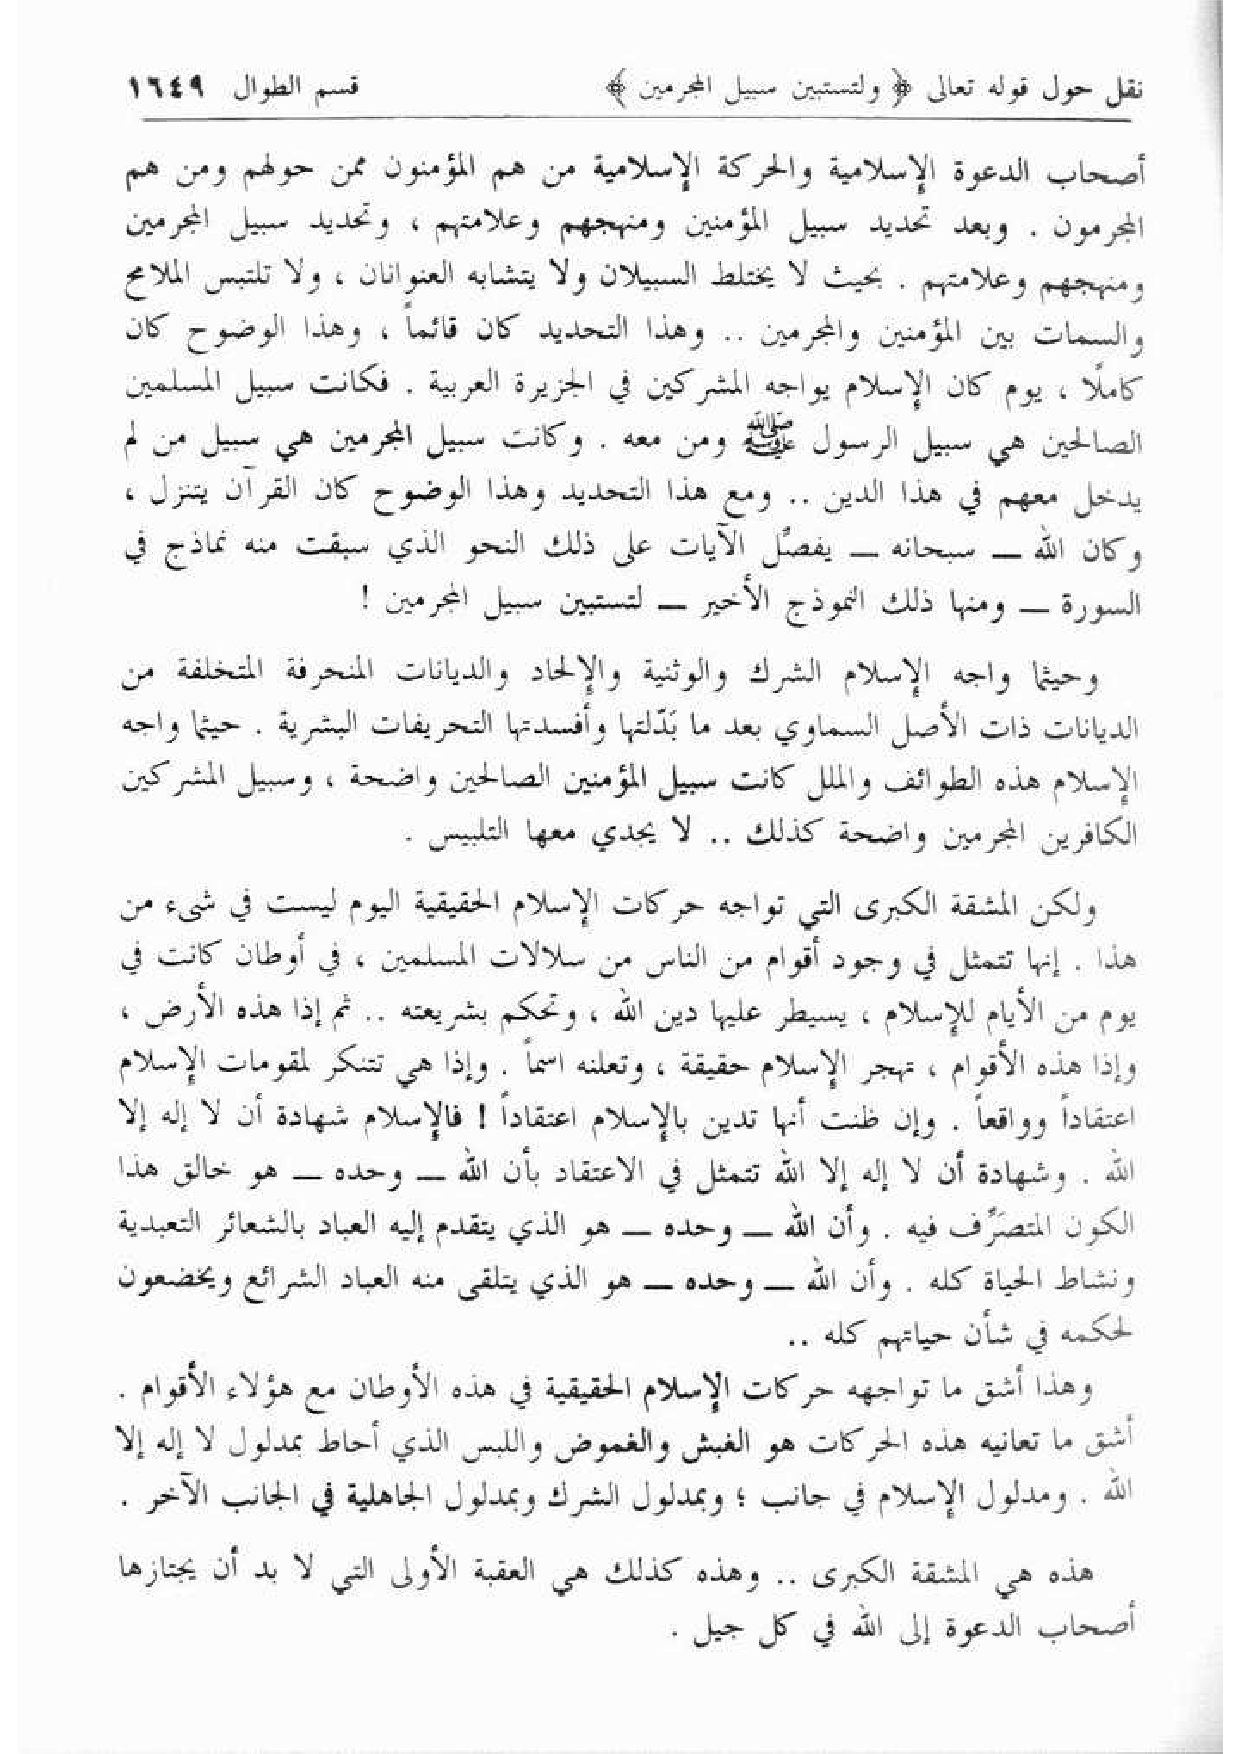 نقل حول قوله تعالى ﴿ ولتستبين سبيل المجرمين ﴾ قسم الطوال ١٦٤٩
أصحاب الدعوة الإسلامية والحركة الإسلامية من هم المؤمنون ممن حولهم ومن هم
المجرمون . وبعد تحديد سبيل المؤمنين ومنهجهم وعلامتهم ، وتحديد سبيل المجرمين
ومنهجهم وعلامتهم . بحيث لا يختلط السبيلان ولا يتشابه العنوانان ، ولا تلتبس الملامح
والسمات بين المؤمنين والمجرمين .. وهذا التحديد كان قائماً ، وهذا الوضوح كان
كاملًا ، يوم كان الإسلام يواجه المشركين في الجزيرة العربية . فكانت سبيل المسلمين
الصالحين هي سبيل الرسول ﷺ ومن معه . وكانت سبيل المجرمين هي سبيل من لم
يدخل معهم في هذا الدين .. ومع هذا التحديد وهذا الوضوح كان القرآن يتنزل ،
وكان الله ــ سبحانه ــ يفصِّل الآيات على ذلك النحو الذي سبقت منه نماذج في
السورة ــ ومنها ذلك النموذج الأخير ــ لتستبين سبيل المجرمين !
وحيثما واجه الإسلام الشرك والوثنية والإلحاد والديانات المنحرفة المتخلفة من
الديانات ذات الأصل السماوي بعد ما بَدّلتها وأفسدتها التحريفات البشرية . حيثما واجه
الإسلام هذه الطوائف والملل كانت سبيل المؤمنين الصالحين واضحة ، وسبيل المشركين
الكافرين المجرمين واضحة كذلك .. لا يجدي معها التلبيس .
ولكن المشقة الكبرى التي تواجه حركات الإسلام الحقيقية اليوم ليست في شىء من
هذا . إنها تتمثل في وجود أقوام من الناس من سلالات المسلمين ، في أوطان كانت في
يوم من الأيام للإسلام ، يسيطر عليها دين الله ، وتحكم بشريعته .. ثم إذا هذه الأرض ،
وإذا هذه الأقوام ، تهجر الإسلام حقيقة ، وتعلنه اسماً . وإذا هي تتنكر لمقومات الإسلام
اعتقاداً وواقعاً . وإن ظنت أنها تدين بالإسلام اعتقاداً ! فالإسلام شهادة أن لا إله إلا
الله . وشهادة أن لا إله إلا الله تتمثل في الاعتقاد بأن الله ــ وحده ــ هو خالق هذا
الكون المتصرِّف فيه . وأن الله ــ وحده ــ هو الذي يتقدم إليه العباد بالشعائر التعبدية
ونشاط الحياة كله . وأن الله ــ وحده ــ هو الذي يتلقى منه العباد الشرائع ويخضعون
لحكمه في شأن حياتهم كله ..
وهذا أشق ما تواجهه حركات الإسلام الحقيقية في هذه الأوطان مع هؤلاء الأقوام .
أشق ما تعانيه هذه الحركات هو الغبش والغموض واللبس الذي أحاط بمدلول لا إله إلا
الله . ومدلول الإسلام في جانب ؛ وبمدلول الشرك وبمدلول الجاهلية في الجانب الآخر .
هذه هي المشقة الكبرى .. وهذه كذلك هي العقبة الأولى التي لا بد أن يجتازها
أصحاب الدعوة إلى الله في كل جيل .